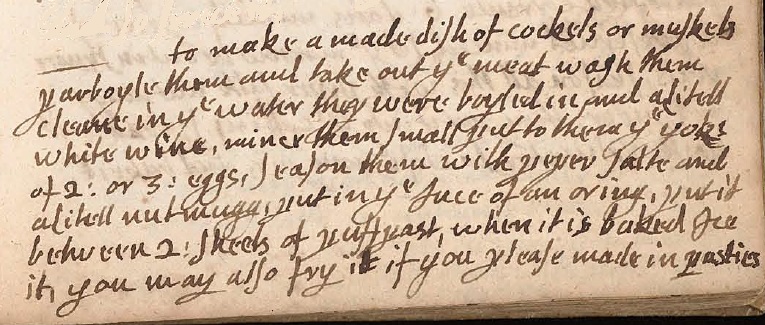 to make a made dish of cockels or muskels
parboyle them and take out yᵉ meat wash them
cleane in yᵉ water they were boyled in and a litell
white wine, mince them small put to them yᵉ yoks
of 2: or 3: eggs, season them with peper salte and
a litell nutmugg, put in yᵉ juce of an oring, put it
between 2: sheets of puff past, when it is baked Ice
it, you may also fry it if you please made in pasties